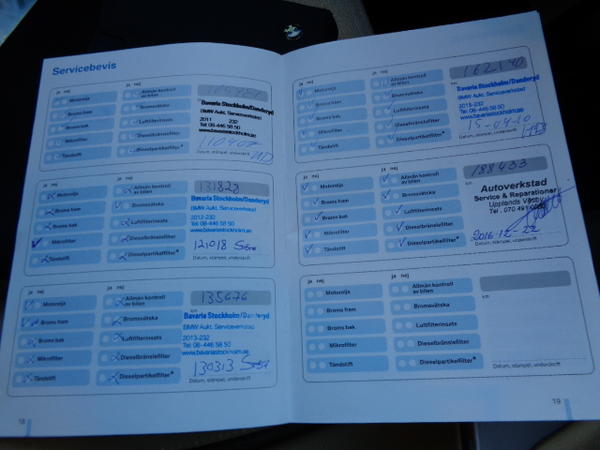 Servicebevis
ja nej
Motorolja
Broms fram
Broms bak
Mikrofilter
Tändstift
Allmän kontroll
av bilen
Bromsvätska
Luftfilterinsats
Dieselbränslefilter
Dieselpartikelfilter*
Bavaria Stockholm/Danderyd
BMW Aukt. Serviceverkstad
2011 232
Tel: 08-446 58 50
www.bavariastockholm.se
Datum, stämpel, underskrift
ja nej
Motorolja
Broms fram
Broms bak
Mikrofilter
Tändstift
Allmän kontroll
av bilen
Bromsvätska
Luftfilterinsats
Dieselbränslefilter
Dieselpartikelfilter*
Bavaria Stockholm/Danderyd
BMW Aukt. Serviceverkstad
2012-232
Tel: 08-446 58 50
www.bavariastockholm.se
121018
Datum, stämpel, underskrift
ja nej
Motorolja
Broms fram
Broms bak
Mikrofilter
Tändstift
Allmän kontroll
av bilen
Bromsvätska
Luftfilterinsats
Dieselbränslefilter
Dieselpartikelfilter*
135676
km
Bavaria Stockholm/Danderyd
BMW Aukt. Serviceverkstad
2013-232
Tel: 08-446 58 50
www.bavariastockholm.se
130313
Datum, stämpel, underskrift
18
ja nej
Motorolja
Broms fram
Broms bak
Mikrofilter
Tändstift
Allmän kontroll
av bilen
Bromsvätska
Luftfilterinsats
Dieselbränslefilter
Dieselpartikelfilter*
162140
Bavaria Stockholm/Danderyd
BMW Aukt. Serviceverkstad
2015-232
Tel: 08-446 58 50
www.bavariastockholm.se
15-04-10
Datum, stämpel, underskrift
ja nej
Motorolja
Broms fram
Broms bak
Mikrofilter
Tändstift
Allmän kontroll
av bilen
Bromsvätska
Luftfilterinsats
Dieselbränslefilter
Dieselpartikelfilter*
188433
km
Autoverkstad
Service & Reparationer
Upplands Väsby
Tel. 070 491
2016-12-22
Datum, stämpel, underskrift
ja nej
Motorolja
Broms fram
Broms bak
Mikrofilter
Tändstift
Allmän kontroll
av bilen
Bromsvätska
Luftfilterinsats
Dieselbränslefilter
Dieselpartikelfilter*
km
Datum, stämpel, underskrift
19